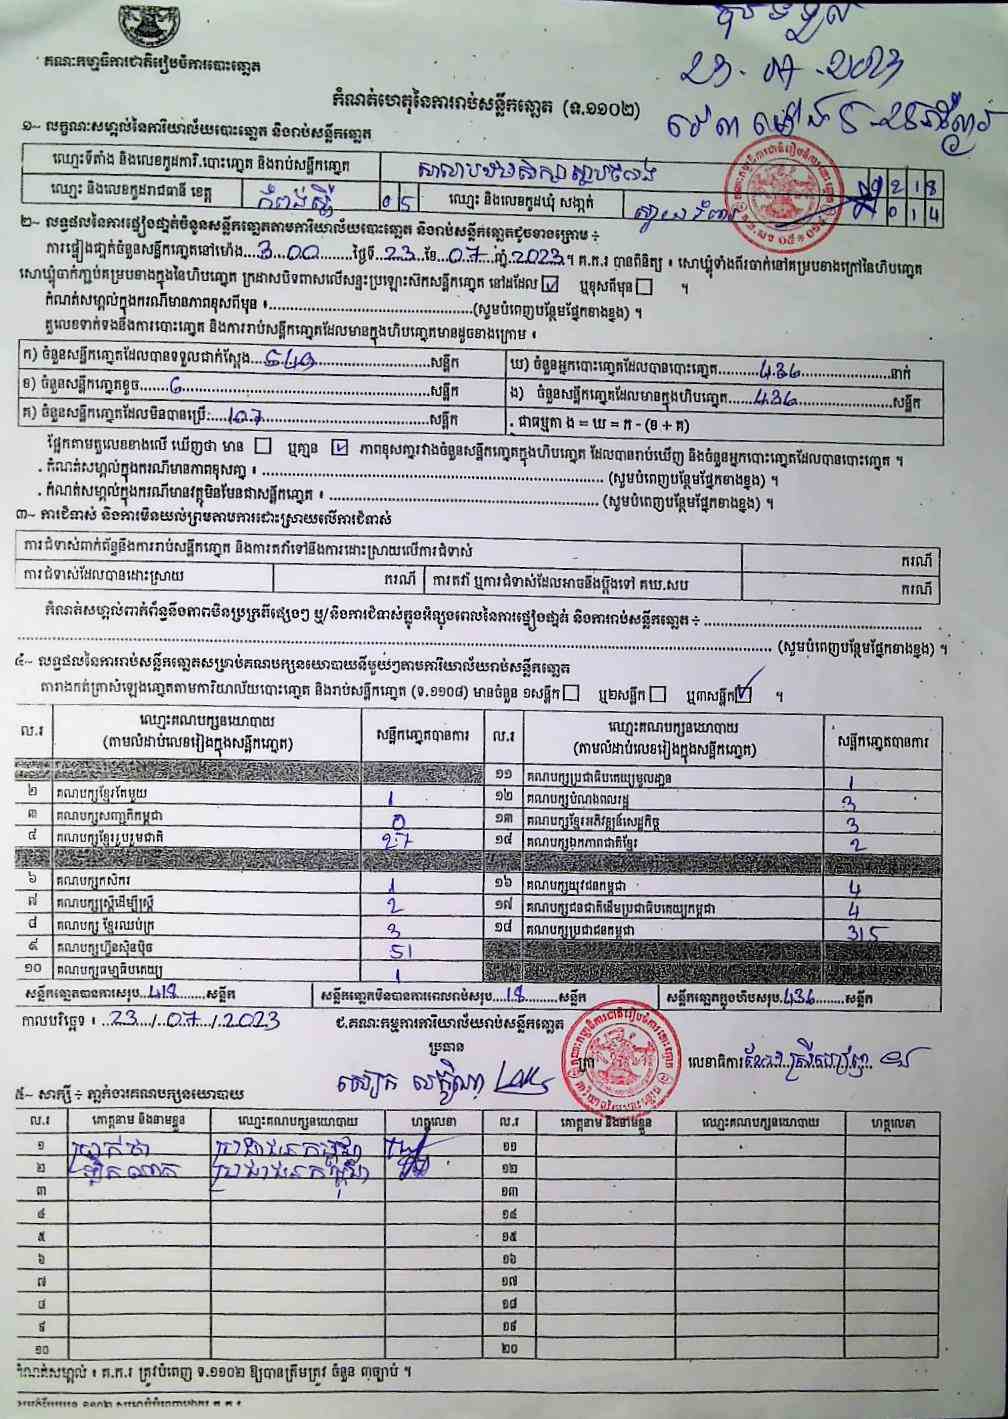 បានទទួល
23-07-2023
គណៈកម្មាធិការជាតិរៀបចំការបោះឆ្នោត
កំណត់ហេតុនៃការរាប់សន្លឹកឆ្នោត (ទ.១១០២)
១~ លក្ខណៈសម្គាល់នៃការិយាល័យបោះឆ្នោត និងរាប់សន្លឹកឆ្នោត
ឈ្មោះទីតាំង និងលេខកូដការិ.បោះឆ្នោត និងរាប់សន្លឹកឆ្នោត 0218
ឈ្មោះ និងលេខកូដរាជធានី ខេត្ត កំពង់ស្ពឺ 05 ឈ្មោះ និងលេខកូដឃុំ សង្កាត់ 014
២~ លទ្ធផលនៃការផ្ទៀងផ្ទាត់ចំនួនសន្លឹកឆ្នោតតាមការិយាល័យបោះឆ្នោត និងរាប់សន្លឹកឆ្នោតដូចខាងក្រោម ÷
ការផ្ទៀងផ្ទាត់ចំនួនសន្លឹកឆ្នោតនៅម៉ោង...3.00...ថ្ងៃទី.23.ខែ...07...ឆ្នាំ.2023.។ គ.ក.រ បានពិនិត្យ ៖ សោឃ្លុំទាំងពីរចាក់នៅគម្របខាងក្រៅនៃហិបឆ្នោត
សោឃ្លុំចាក់ភ្ជាប់គម្របខាងក្នុងនៃហិបឆ្នោត ក្រដាសបិទពាសលើសន្ទះប្រឡោះសិកសន្លឹកឆ្នោត នៅដដែល ☑ ឬខុសពីមុន ☐ ។
កំណត់សម្គាល់ក្នុងករណីមានភាពខុសពីមុន ៖ ........ (សូមបំពេញបន្ថែមផ្នែកខាងខ្នង) ។
តួលេខទាក់ទងនឹងការបោះឆ្នោត និងការរាប់សន្លឹកឆ្នោតដែលមានក្នុងហិបឆ្នោតមានដូចខាងក្រោម ៖
ក) ចំនួនសន្លឹកឆ្នោតដែលបានទទួលជាក់ស្តែង...549...សន្លឹក ឃ) ចំនួនអ្នកបោះឆ្នោតដែលបានបោះឆ្នោត...436...នាក់
ខ) ចំនួនសន្លឹកឆ្នោតខូច...6...សន្លឹក ង) ចំនួនសន្លឹកឆ្នោតដែលមានក្នុងហិបឆ្នោត...436...សន្លឹក
គ) ចំនួនសន្លឹកឆ្នោតដែលមិនបានប្រើ:...107...សន្លឹក . ជាធម្មតា ង = ឃ = ក - (ខ + គ)
ផ្អែកតាមតួលេខខាងលើ ឃើញថា មាន ☐ ឬគ្មាន ☑ ភាពខុសគ្នារវាងចំនួនសន្លឹកឆ្នោតក្នុងហិបឆ្នោត ដែលបានរាប់ឃើញ និងចំនួនអ្នកបោះឆ្នោតដែលបានបោះឆ្នោត ។
. កំណត់សម្គាល់ក្នុងករណីមានភាពខុសគ្នា ៖ ........ (សូមបំពេញបន្ថែមផ្នែកខាងខ្នង) ។
. កំណត់សម្គាល់ក្នុងករណីមានវត្ថុមិនមែនជាសន្លឹកឆ្នោត ៖ ........ (សូមបំពេញបន្ថែមផ្នែកខាងខ្នង) ។
៣~ ការជំទាស់ និងការមិនយល់ព្រមតាមការដោះស្រាយលើការជំទាស់
ការជំទាស់ពាក់ព័ន្ធនឹងការរាប់សន្លឹកឆ្នោត និងការតវ៉ាទៅនឹងការដោះស្រាយលើការជំទាស់ ករណី
ការជំទាស់ដែលបានដោះស្រាយ ករណី ការតវ៉ា ឬការជំទាស់ដែលអាចនឹងប្តឹងទៅ គឃ.សប ករណី
កំណត់សម្គាល់ពាក់ព័ន្ធនឹងភាពមិនប្រក្រតីផ្សេងៗ ឬ/និងការជំទាស់ក្នុងអំឡុងពេលនៃការផ្ទៀងផ្ទាត់ និងការរាប់សន្លឹកឆ្នោត ÷ ........
........ (សូមបំពេញបន្ថែមផ្នែកខាងខ្នង) ។
៤~ លទ្ធផលនៃការរាប់សន្លឹកឆ្នោតសម្រាប់គណបក្សនយោបាយនីមួយៗតាមការិយាល័យរាប់សន្លឹកឆ្នោត
តារាងកត់ត្រាសំឡេងឆ្នោតតាមការិយាល័យបោះឆ្នោត និងរាប់សន្លឹកឆ្នោត (ទ.១១០៨) មានចំនួន ១សន្លឹក ☐ ឬ២សន្លឹក ☐ ឬ៣សន្លឹក ☑ ។
ល.រ ឈ្មោះគណបក្សនយោបាយ (តាមលំដាប់លេខរៀងក្នុងសន្លឹកឆ្នោត) សន្លឹកឆ្នោតបានការ ល.រ ឈ្មោះគណបក្សនយោបាយ (តាមលំដាប់លេខរៀងក្នុងសន្លឹកឆ្នោត) សន្លឹកឆ្នោតបានការ
១១ គណបក្សប្រជាធិបតេយ្យមូលដ្ឋាន 1
២ គណបក្សខ្មែរតែមួយ 1 ១២ គណបក្សបំណងពលរដ្ឋ 3
៣ គណបក្សសញ្ជាតិកម្ពុជា 0 ១៣ គណបក្សខ្មែរអភិវឌ្ឍន៍សេដ្ឋកិច្ច 3
៤ គណបក្សខ្មែររួបរួមជាតិ 27 ១៤ គណបក្សឯកភាពជាតិខ្មែរ 2
៦ គណបក្សកសិករ 1 ១៦ គណបក្សយុវជនកម្ពុជា 4
៧ គណបក្សស្ត្រីដើម្បីស្ត្រី 2 ១៧ គណបក្សជនជាតិដើមប្រជាធិបតេយ្យកម្ពុជា 4
៨ គណបក្ស ខ្មែរឈប់ក្រ 3 ១៨ គណបក្សប្រជាជនកម្ពុជា 315
៩ គណបក្សហ្វ៊ុនស៊ិនប៉ិច 51
១០ គណបក្សធម្មាធិបតេយ្យ 1
សន្លឹកឆ្នោតបានការសរុប..418...សន្លឹក សន្លឹកឆ្នោតមិនបានការពេលរាប់សរុប...18...សន្លឹក សន្លឹកឆ្នោតក្នុងហិបសរុប.436...សន្លឹក
កាលបរិច្ឆេទ ៖ ..23../..07../.2023 ជ.គណៈកម្មការការិយាល័យរាប់សន្លឹកឆ្នោត
ប្រធាន
ត្រា លេខាធិការ
៥~ សាក្សី ÷ ភ្នាក់ងារគណបក្សនយោបាយ
ល.រ គោត្តនាម និងនាមខ្លួន ឈ្មោះគណបក្សនយោបាយ ហត្ថលេខា ល.រ គោត្តនាម និងនាមខ្លួន ឈ្មោះគណបក្សនយោបាយ ហត្ថលេខា
១ ប្រជាជនកម្ពុជា ១១
២ ប្រជាជនកម្ពុជា ១២
៣ ១៣
៤ ១៤
៥ ១៥
៦ ១៦
៧ ១៧
៨ ១៨
៩ ១៩
១០ ២០
កំណត់សម្គាល់ ៖ គ.ក.រ ត្រូវបំពេញ ទ.១១០២ ឱ្យបានត្រឹមត្រូវ ចំនួន ៣ច្បាប់ ។